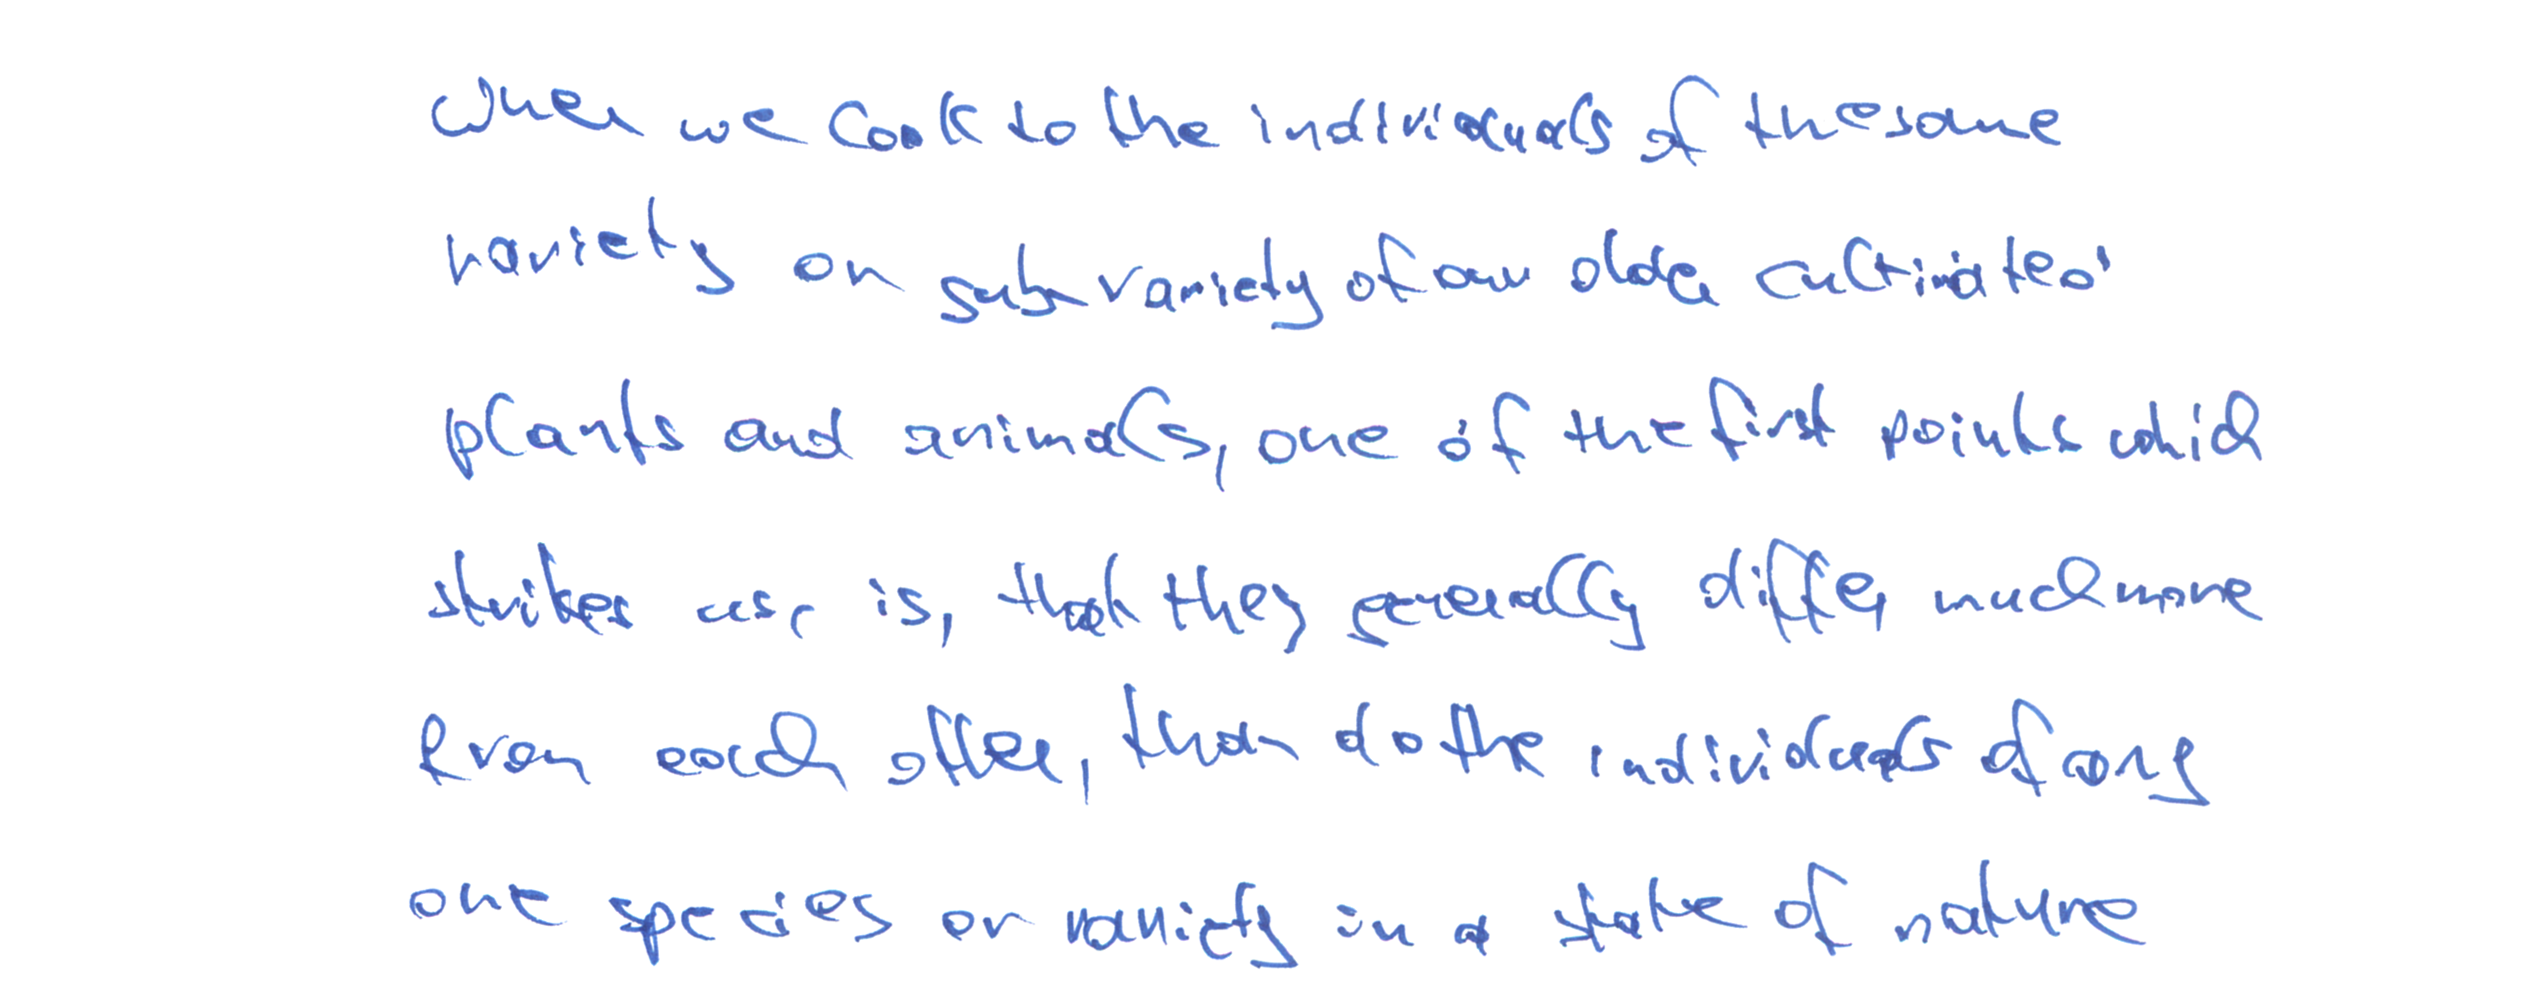 When we look to the individuals of the same
variety or sub-variety of our older cultivated
plants and animals, one of the first points which
strikes us, is, that they generally differ much more
from each other, than do the individuals of any
one species or variety in a state of nature